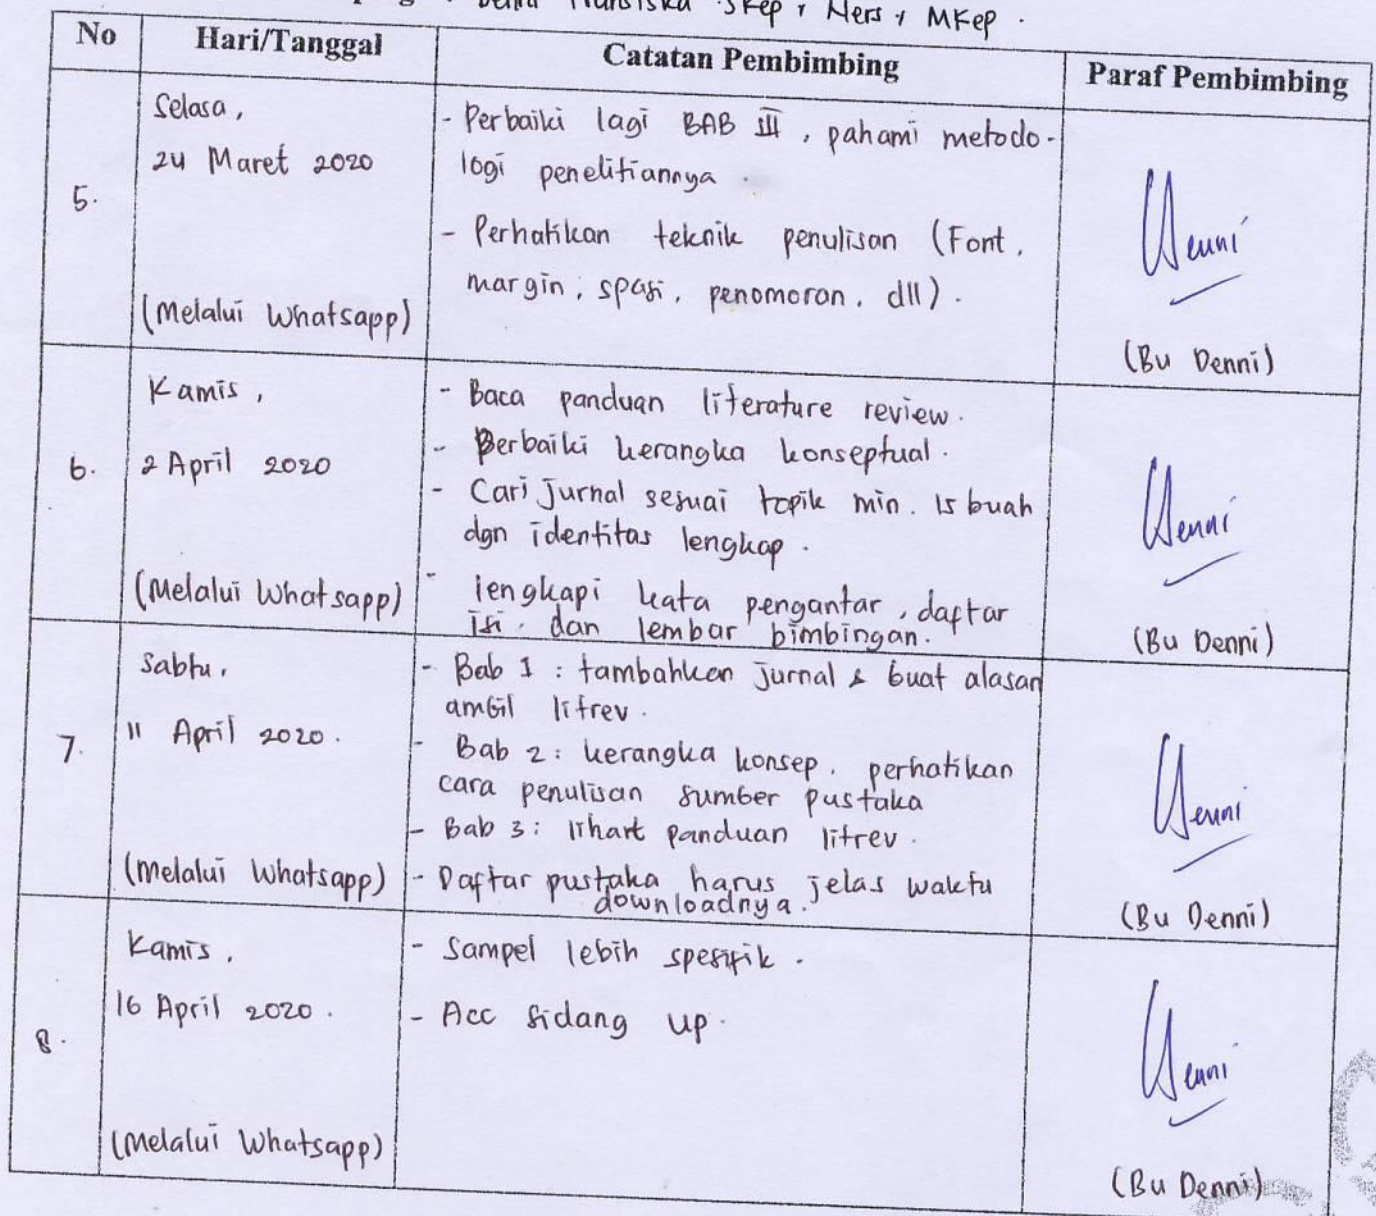 SKep, Ners, MKep.
No Hari/Tanggal Catatan Pembimbing Paraf Pembimbing
5.
Selasa,
24 Maret 2020
(Melalui Whatsapp)
- Perbaiki lagi BAB III, pahami metodo-
logi penelitiannya.
- Perhatikan teknik penulisan (Font,
margin, spasi, penomoran, dll).
Denni
(Bu Denni)
6.
Kamis,
2 April 2020
(Melalui Whatsapp)
- Baca panduan literature review.
- Perbaiki kerangka konseptual.
- Cari jurnal sesuai topik min. 15 buah
dgn identitas lengkap.
- lengkapi kata pengantar, daftar
isi, dan lembar bimbingan.
Denni
(Bu Denni)
7.
Sabtu,
11 April 2020.
(Melalui Whatsapp)
- Bab 1 : tambahkan jurnal & buat alasan
ambil litrev.
- Bab 2 : kerangka konsep, perhatikan
cara penulisan sumber pustaka
- Bab 3 : lihart panduan litrev.
- Daftar pustaka harus jelas waktu
downloadnya.
Denni
(Bu Denni)
8.
Kamis,
16 April 2020.
(Melalui Whatsapp)
- Sampel lebih spesifik.
- Acc sidang up.
Denni
(Bu Denni)